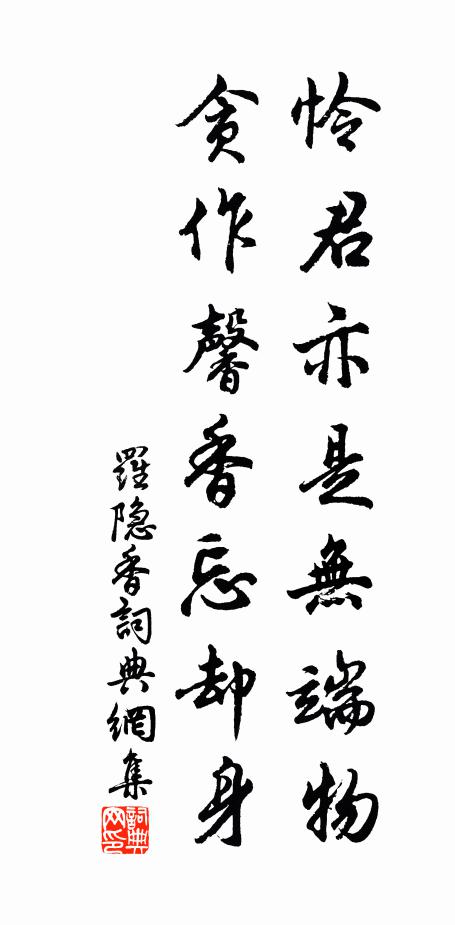 怜君亦是無端物
貪作馨香忘却身
羅隐香詞典網集
詞典
网印